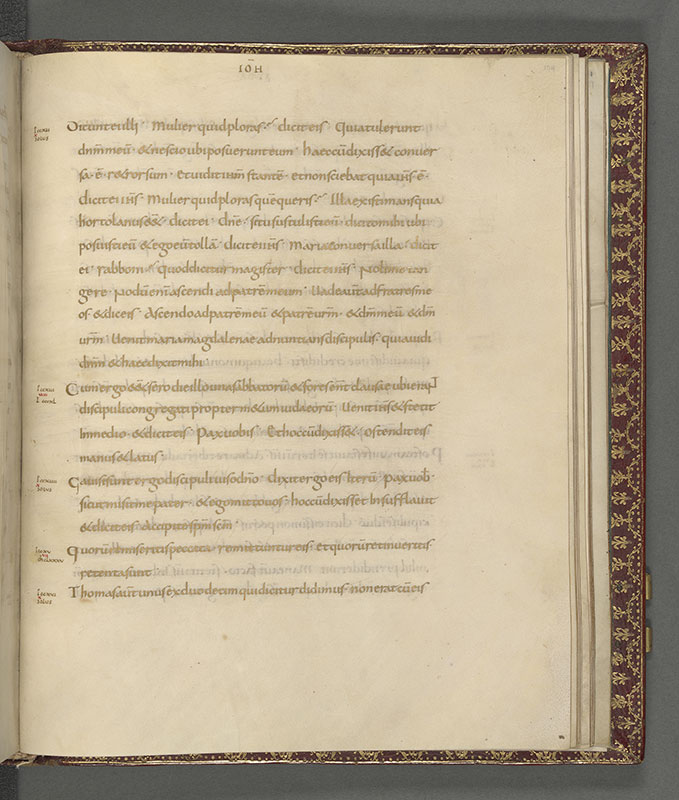 IOH
Dicunt ei illi · Mulier quid ploras · dicit eis · Quia tulerunt
dnm meu · & nescio ubi posuerunt eum · haec cu dixiss& conver
sa · e · retrorsum · Et uidit ihm stante · et non sciebat quia ihs · e ·
dicit ei ihs · Mulier quid ploras quem queris · Illa existimans quia
hortolanus ess& · dicit ei · dne · si tu sustulisti eu dicito mihi ubi
posuisti eu & ego eu tolla · dicit ei ihs · Maria conversa illa · dicit
ei · rabboni · quod dicitur magister · dicit ei ihs · Noli me tan
gere · Nodu eni ascendi ad patrem meum · Uade aut ad fratres me
os & dic eis · Ascendo ad patre meu & patre urm · & dm meu & dm
urm · Uenit maria magdalenae adnuntians discipulis · quia uidi
dnm & haec dixit mihi
Cum ergo ess& sero die illo una sabbatoru & fores essent clausae ubi erant
discipuli congregati propter metum iudaeoru · Uenit ihs & stetit
In medio & dicit eis · Pax uobis · Et hoc cu dixiss& · ostendit eis
manus & latus ·
Gauisi sunt ergo discipuli uiso dno · dixit ergo eis Iteru · pax uob ·
sicut misit me pater · & ego mitto uos · hoc cu dixisset Insufflauit
& dicit eis · Accipite spm scm ·
Quoru remiseritis peccata · remittuntur eis · et quoru retinueritis
retenta sunt
Thomas aut unus ex duodecim qui dicitur didimus · non erat cu eis